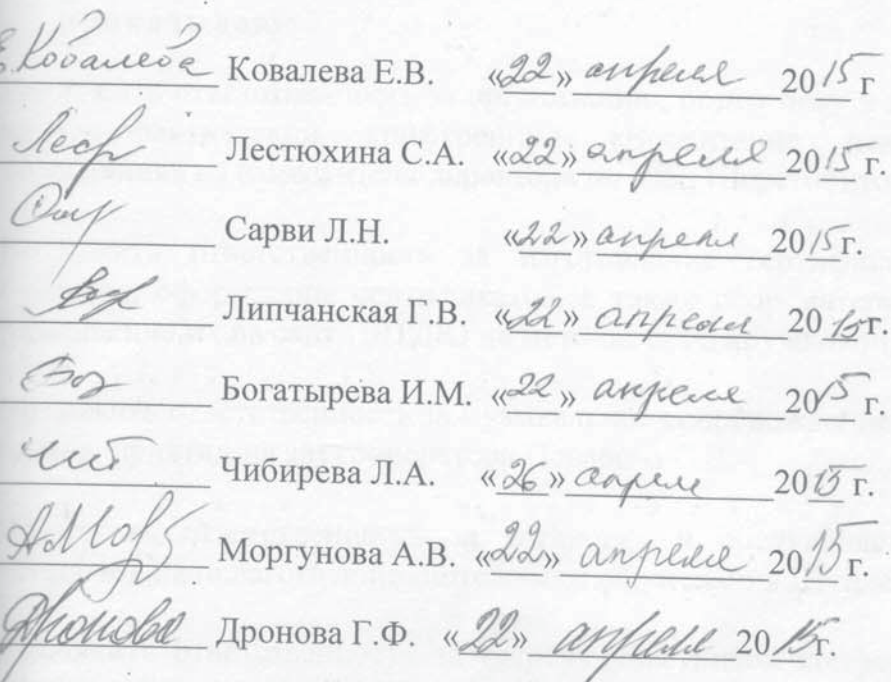 Е.Ковалева Ковалева Е.В. «22» апреля 2015 г.
Лестюхина С.А. «22» апреля 2015 г.
Сарви Л.Н. «22» апреля 2015 г.
Липчанская Г.В. «22» апреля 2015г.
Богатырева И.М. «22» апреля 2015 г.
Чибирева Л.А. «26» апреля 2015 г.
Моргунова А.В. «22» апреля 2015 г.
Дронова Дронова Г.Ф. «22» апреля 2015г.